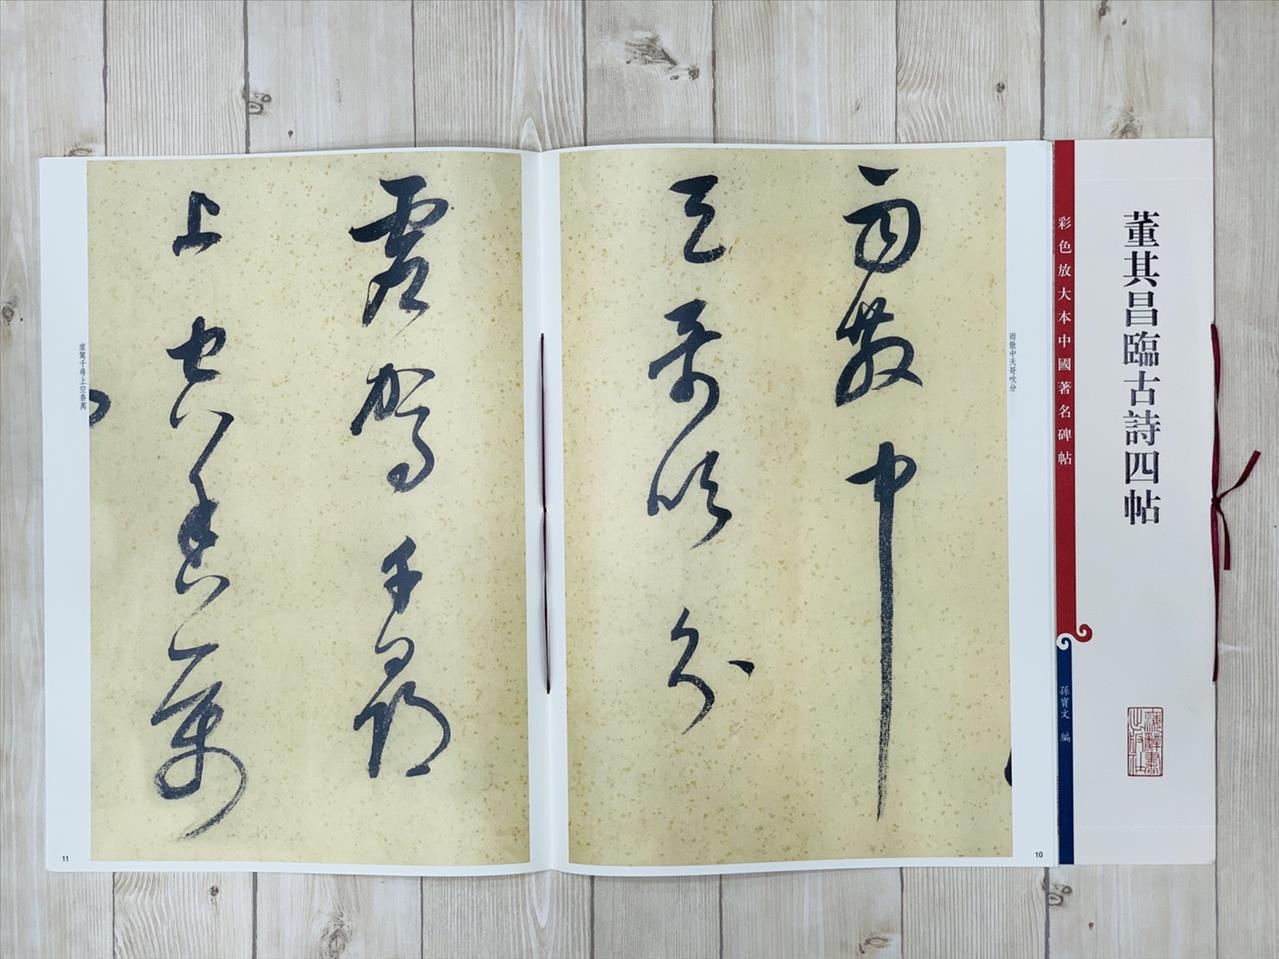 董其昌臨古詩四帖
彩色放大本中國著名碑帖
孫寶文 編
雨散中天哥吹分
雨散中
天哥吹分
10
虛駕千尋
上空香萬
虛駕千尋上空香萬
11